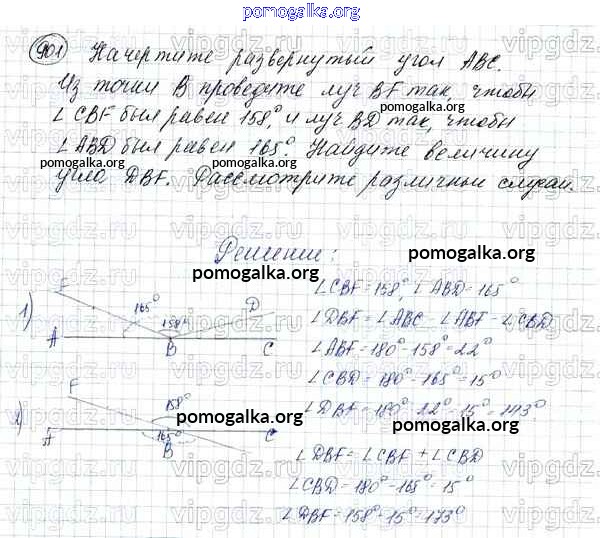 pomogalka.org
901 Начертите развернутый угол ABC.
Из точки B проведите луч BF так, чтобы
∠CBF был равен 158°, и луч BD так, чтобы
∠ABD был равен 165°. Найдите величину
угла DBF. Рассмотрите различные случаи.
Решение:
pomogalka.org
pomogalka.org
1)
F
165°
158°
D
A
B
C
∠CBF = 158°, ∠ABD = 165°
∠DBF = ∠ABC - ∠ABF - ∠CBD
∠ABF = 180° - 158° = 22°
∠CBD = 180° - 165° = 15°
∠DBF = 180° - 22° - 15° = 143°
2)
F
158°
A
165°
B
C
pomogalka.org
∠DBF = ∠CBF + ∠CBD
∠CBD = 180° - 165° = 15°
∠DBF = 158° + 15° = 173°